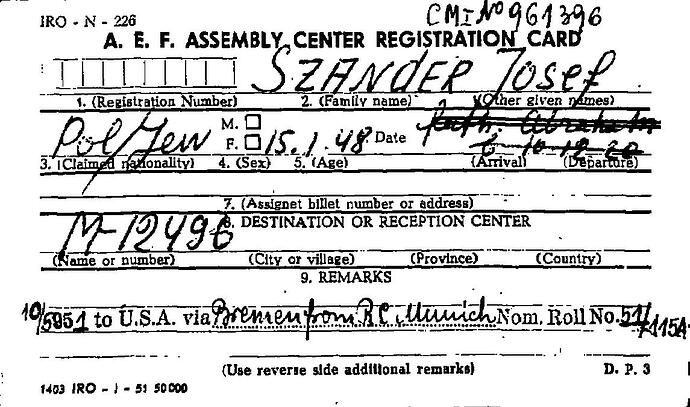 IRO - N - 226 CMI No 961396
A. E. F. ASSEMBLY CENTER REGISTRATION CARD
SZANDER Josef
1. (Registration Number) 2. (Family name) (Other given names)
Pol/Jew M. F. 15.1.48 Date
3. (Claimed nationality) 4. (Sex) 5. (Age) (Arrival) (Departure)
7. (Assignet billet number or address)
M-12496 8. DESTINATION OR RECEPTION CENTER
(Name or number) (City or village) (Province) (Country)
9. REMARKS
10/5951 to U.S.A. via Bremen from RC Munich Nom. Roll No. 51/7115A
(Use reverse side additional remarks) D. P. 3
1403 IRO - J - 51 50000